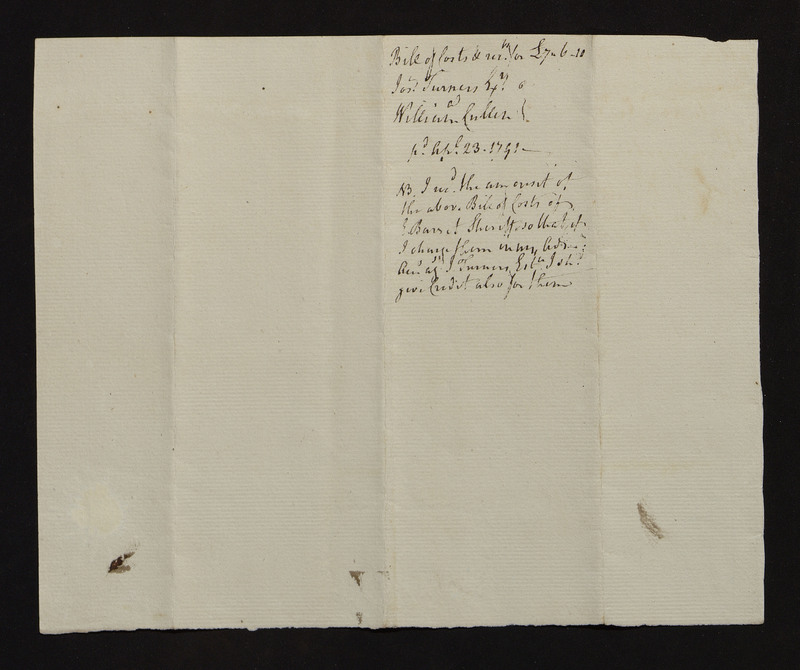 Bill of Costs & rec.t for £7-6-10
Jos. Turners Ex.r
William Cullen
p.d Ap.l 23-1791-
NB. I rec.d the amount of
the above Bill of Costs of
J Barret Sheriff, so that if
I charge them in my
Acc.t ag.t J Turners Est.e I sh.d
give Credit also for them